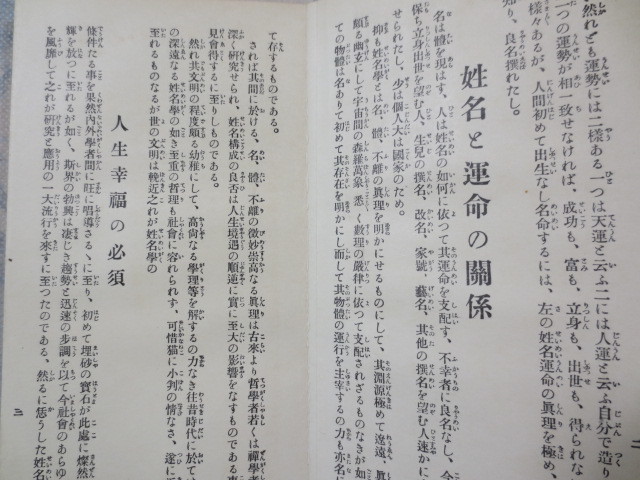 然れども運勢には二樣ある一つは天運と云ふ二には人運と云ふ自分で造り
一つの運勢が相一致せなければ、成功も、富も、立身も、出世も、得られな
樣々あるが、人間初めて出生なし名命するには、左の姓名運命の眞理を極め、
知り、良名撰れたし。
姓名と運命の關係
名は體を現はす、人は姓名の如何に依つて其運命を支配す、不幸者に良名なし、今
保ち立身出世を望む人、生兒の撰名、改名、家號、藝名、其他の撰名を望む人速かに
せられたし、少は個人大は國家のため。
抑も姓名學とは名、體、不離の眞理を明かにせるものにして、其淵源極めて遼遠、眞
頗る幽玄にして宇宙間の森羅萬象悉く數理の嚴律に依つて支配されざるものなきが如
ての物體は名ありて初めて其存在を明かにし而して其物體の運行を主宰するの力も亦名に
二
て存するものである。
されば其間に於ける、名、體、不離の微妙崇高なる眞理は古來より哲學者若くは禪學者
深く硏究せられ、姓名構成の良否は人生境遇の順逆に實に至大の影響をなすものである事
見會得するに至りしものである。
然れ共文明の程度頗る幼稚にして、高尙なる學理等を解するの力なき往昔時代に於ては
の深遠なる姓名學の如き至重の哲理も社會に容れられず、可惜猫に小判の情なさ、遂に
至れるものなるが世の文明は輓近之れが姓名學の
人生幸福の必須
條件たる事を果然內外學者間に旺に唱導さるゝに至り、初めて埋砂の寶石が此處に燦然
輝を放つに至れるが如く、斯界の勃興は凄じき趨勢と迅速の步調を以て今社會のあらゆ
を風靡して之れが硏究と應用の一大流行を來すに至つたのである、然るに恁うした姓名
三